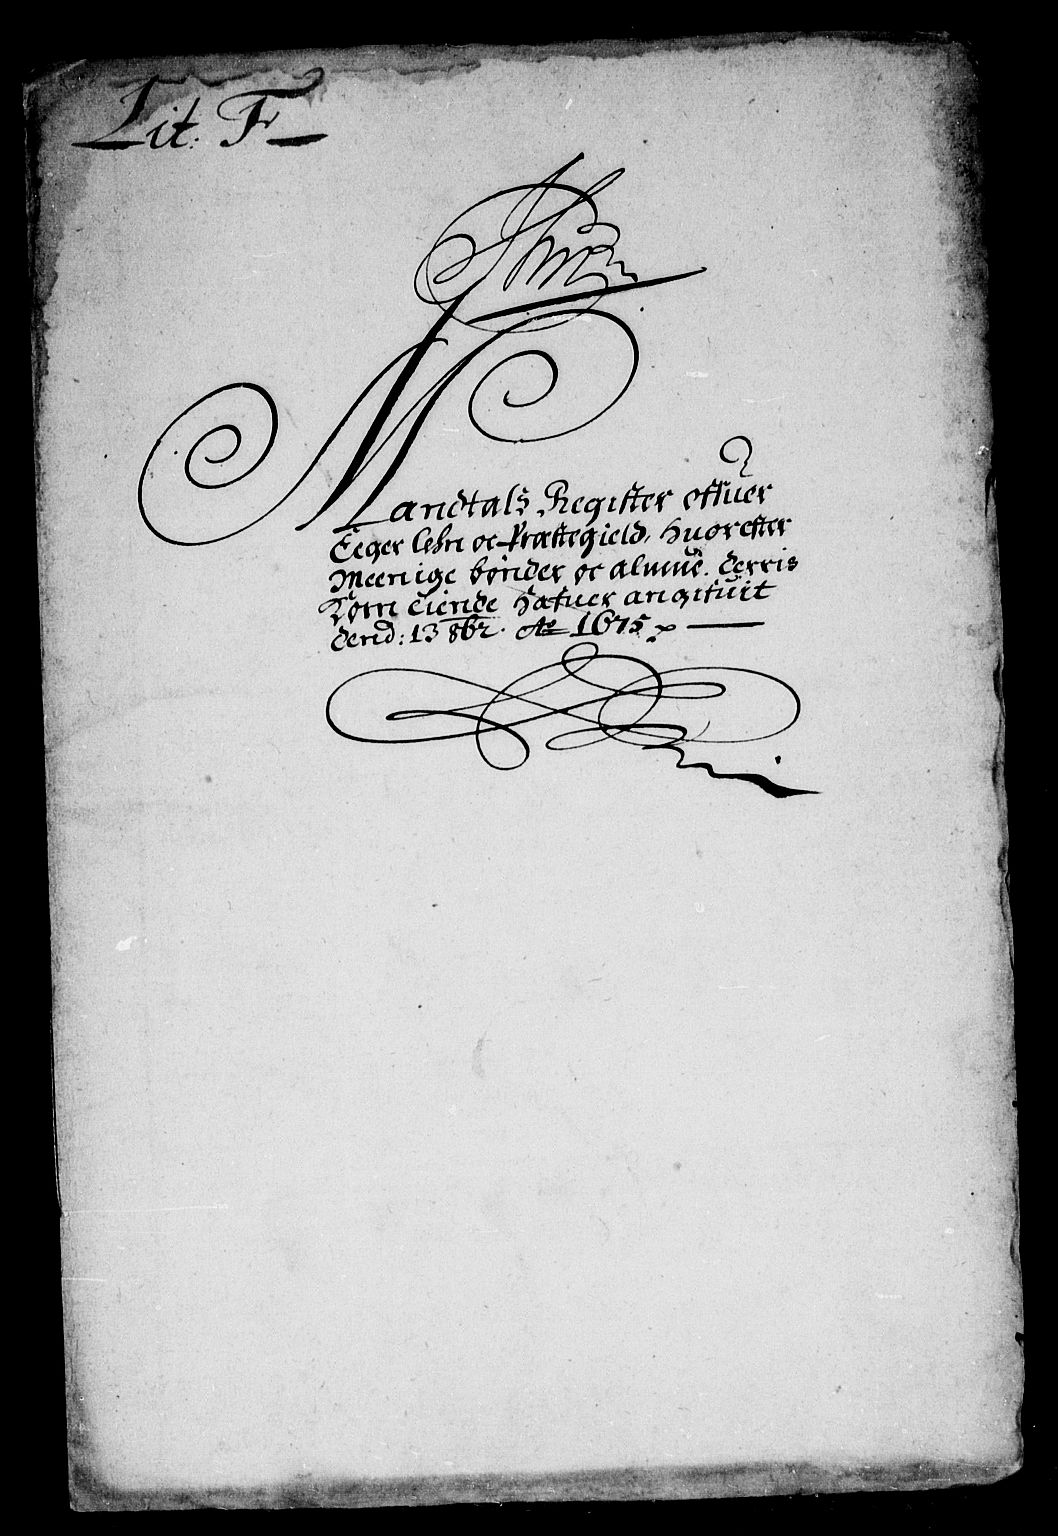 Lit: F
Mandtals Register offuer
Eeger lehn oc Præstegield, Huorefter
Meenige bønder oc almue. derris
Korn tiende hafuer angifuit
dend: 13 8br. Ao 1675